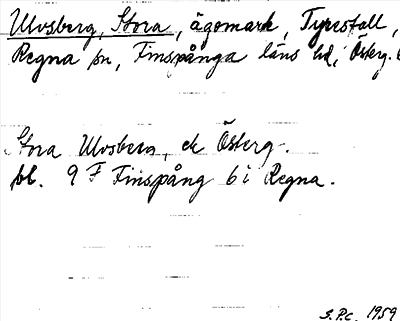 Ulvsberg, Stora, ägomark, Tyrestall,
Regna sn, Finspånga läns hd, Österg.
Stora Ulvsberg, ek Österg.
bl. 9 F Finspång 6 i Regna.
S.P.c. 1959